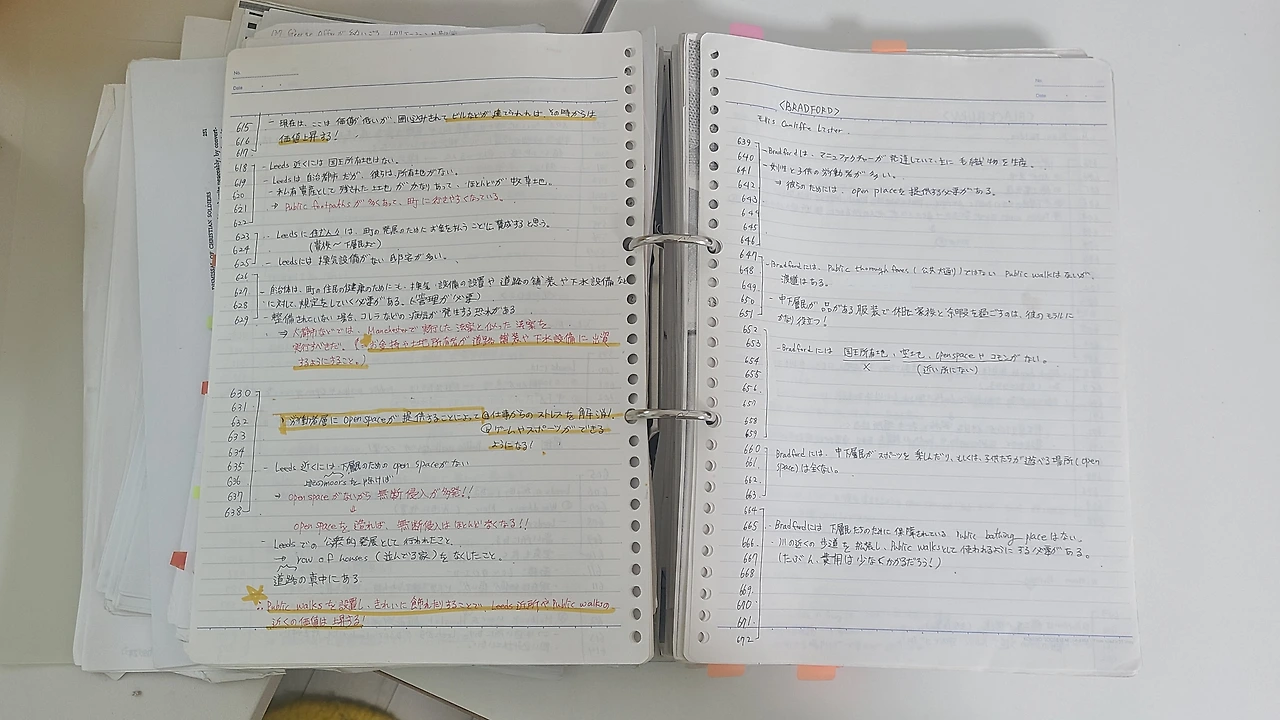 No.
Date
615
616
617
- 現在は、ここは価値が低いが、囲い込みされてビルなどが建てられれば、その時からは
価値上昇する!
618
619
620
621
622
- Leeds 近くには国王所有地はない。
- Leedsは自治都市だが、彼らは所有地がない。
- 私有財産として残された土地がかなりあって、ほとんどが牧草地。
⇒ Public footpathsが多くあって、町に行きやすくなっている。
623
624
625
- Leedsに住む人々は、町の発展のためにお金を払うことに賛成すると思う。
- Leedsには換気設備がない邸宅が多い。
626
627
628
629
- 自治体は、町の住民の健康のために、換気設備の設置や道路の舗装や下水設備など
に対して、規定をしていく必要がある。(管理が必要)
整備されていない場合、コレラなどの病気が発生する恐れがある
630
631
632
633
634
635
636
637
638
労働者層にopen spaceが提供することによって ①仕事からのストレスを解消!
②ゲームやスポーツができる
ようになる!
- Leeds 近くには下層のためのopen spaceがない
⇒ open spaceがないから無断侵入が多発!!
↓
open spaceを造れば、無断侵入はほとんど無くなる!!
- Leedsでの公共的発展として行われたこと。
⇒ row of houses (並んでる家)をなくしたこと。
道路の真中にある
∴ Public walksを設置し、きれいに飾ったりすることが、Leeds近所やPublic walksの
近くの価値は上昇する!
No.
Date
<BRADFORD>
Ellis Cunliffe Lister.
639
640
641
642
643
644
645
646
- Bradfordは、マニュファクチャーが発達していて、主に毛織物を生産。
- 女性と子供の労働者が多い。
⇒ 彼らのためには、open placeを提供する必要がある。
647
648
649
650
651
- Bradfordには、Public thoroughfares (公共大通り)ではない Public walkはないが、
- 中下層民が品がある服装で休日に家族と余暇を過ごすのは、彼のモラルに
かなり役立つ!
652
653
654
655
656
657
658
659
- Bradfordには 国王所有地、空き地、open space や コモンがない。
×
(近い所にない)
660
661
662
663
Bradfordには、中下層民がスポーツを楽しんだり、もしくは、子供たちが遊べる場所(open
space)が全くない。
664
665
666
667
668
669
670
671
672
- Bradfordには下層民たちのために保障されている public bathing placeはない。
- 川の近くの歩道を拡張し、Public walksとして使われるようにする必要がある。
(たぶん、費用は少なくかかるだろう!)